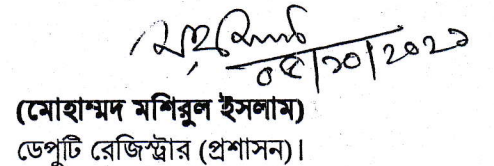 ০৫/১০/২০২১
(মোহাম্মদ মশিরুল ইসলাম)
ডেপুটি রেজিস্ট্রার (প্রশাসন)।